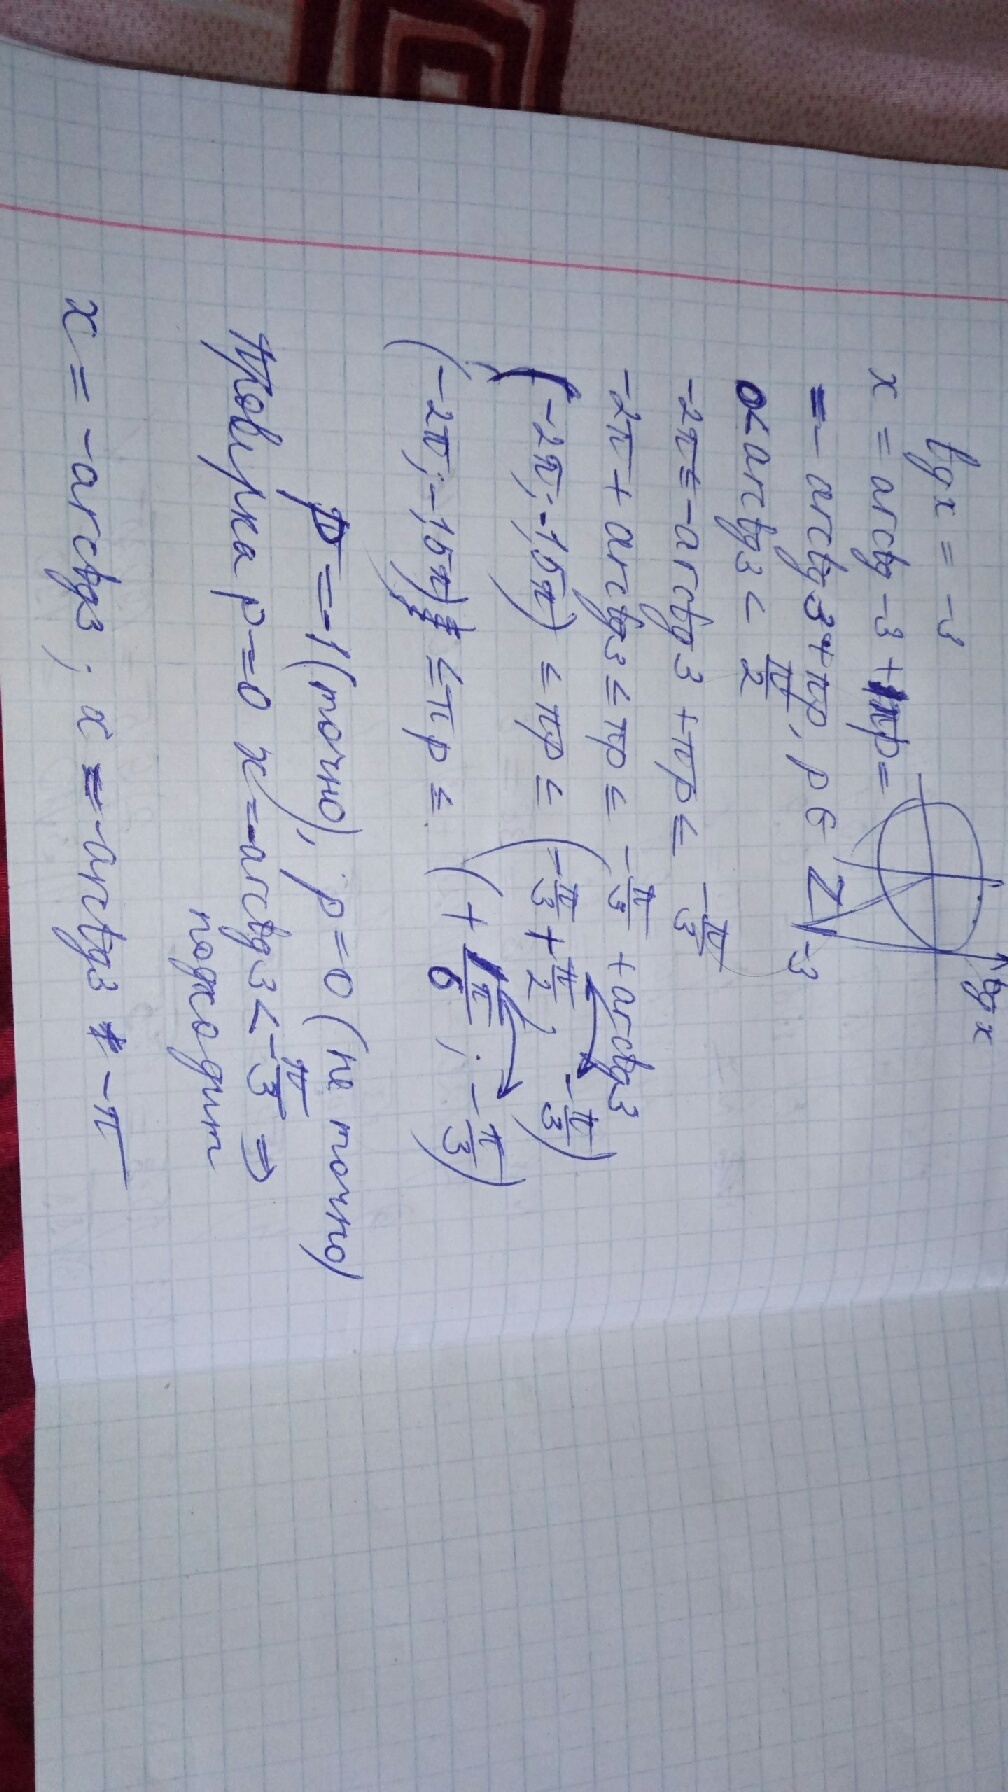 tg x = -3
tg x
-3
x = arctg -3 + πp =
= - arctg 3 + πp, p ∈ Z
0 < arctg 3 < π/2
-2π ≤ -arctg 3 + πp ≤ -π/3
-2π + arctg 3 ≤ πp ≤ -π/3 + arctg 3
(-2π; -1,5π) ≤ πp ≤ (-π/3 + π/2; -π/3)
(-2π; -1,5π) ≤ πp ≤ (+ π/6; -π/3)
p = -1 (точно), p = 0 (не точно)
Проверка p = 0 x = -arctg 3 < -π/3 ⇒
подходит
x = -arctg 3; x = -arctg 3 - π